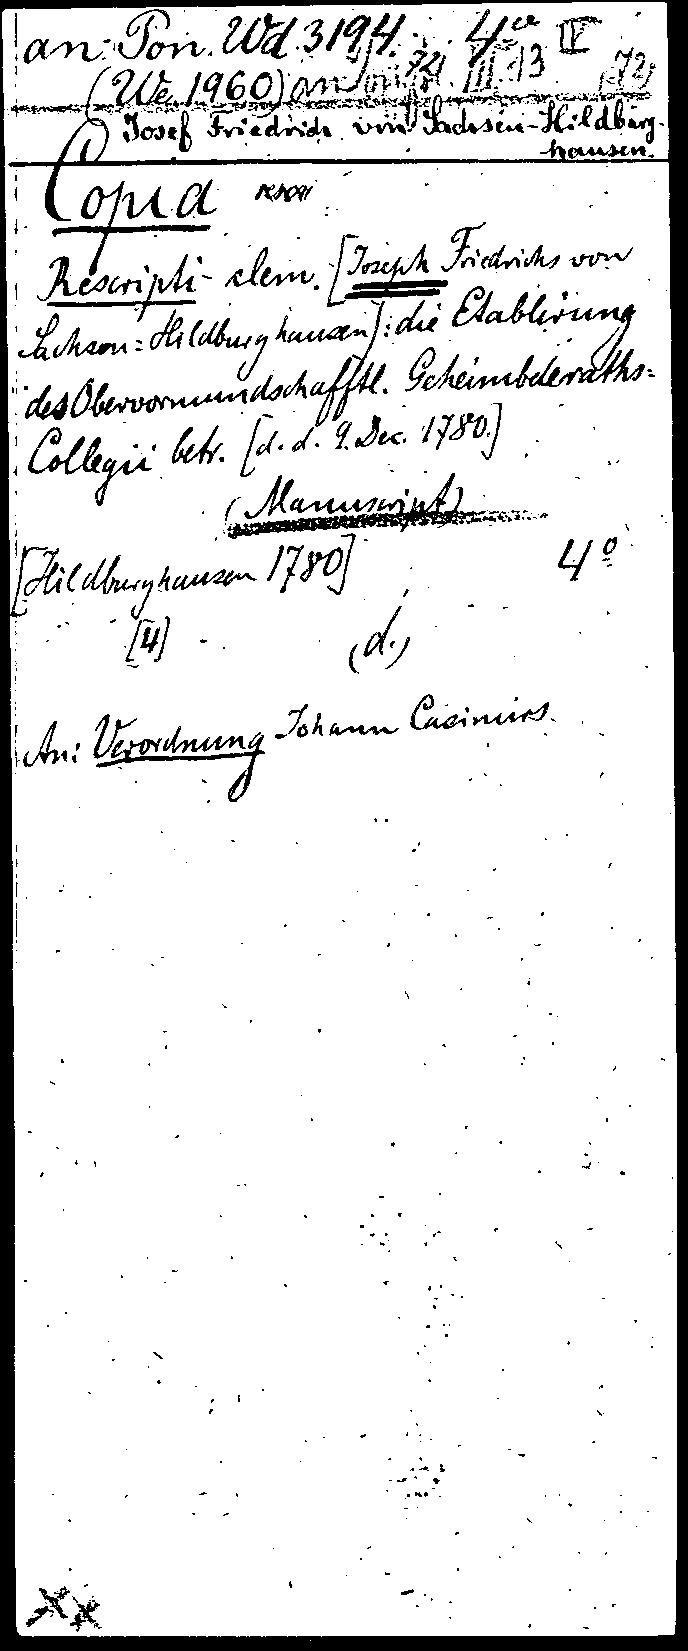 an: Pon. Wd. 3194. 4ce IV
(We. 1960) an III. 13 72,
Josef Friedrich von Sachsen-Hildburg-
hausen.
Copia
Rescripti clem. [Joseph Friedrichs von
Sachsen=Hildburghausen]: die Etablirung
des Obervormundschafftl. Geheimbderaths=
Collegii betr. [d. d. 9. Dec. 1780.]
(Manuscript)
[Hildburghausen 1780] 4º
[4] (d.)
An: Verordnung Johann Casimirs.